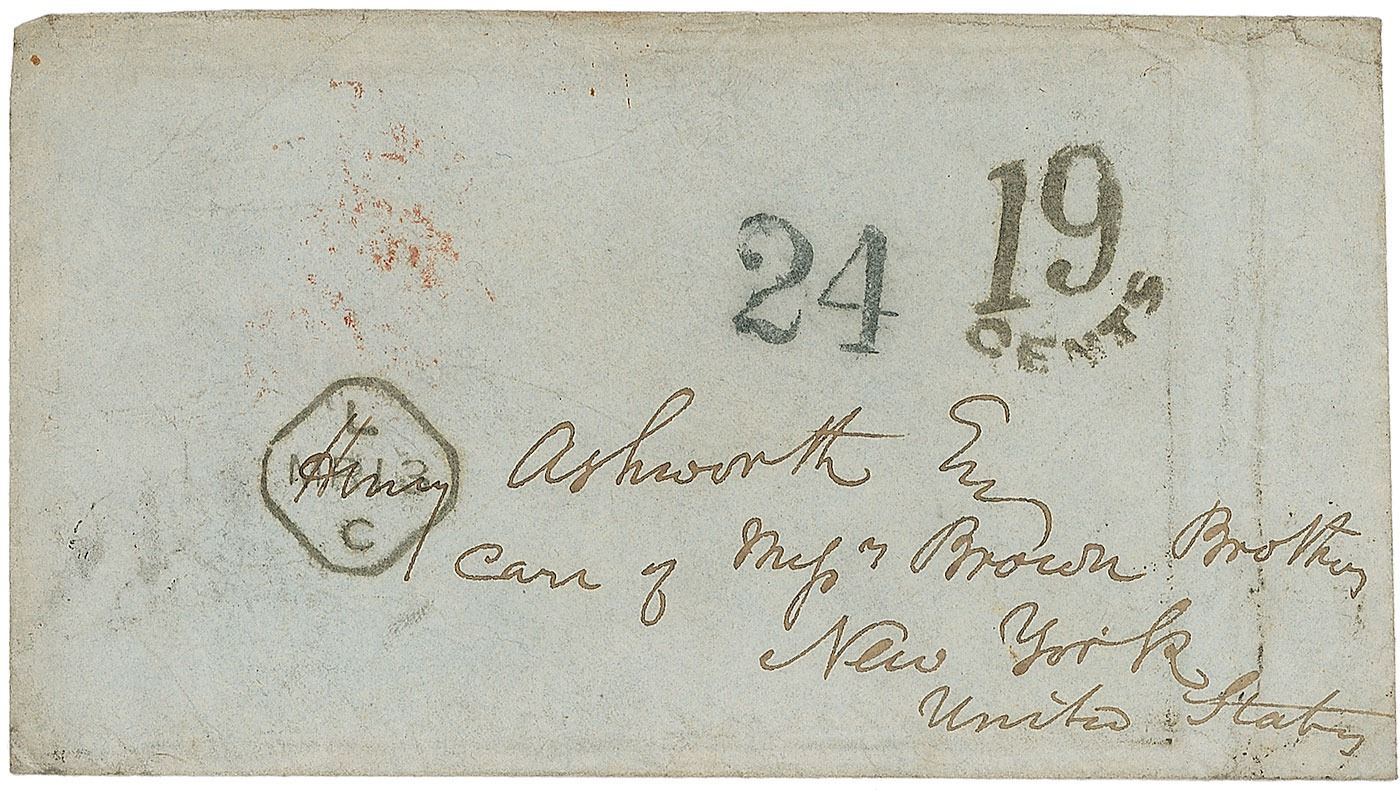 19
CENTS
24
L
C
Henry Ashworth Esq
Care of Messrs Brown Brothers
New York
United States